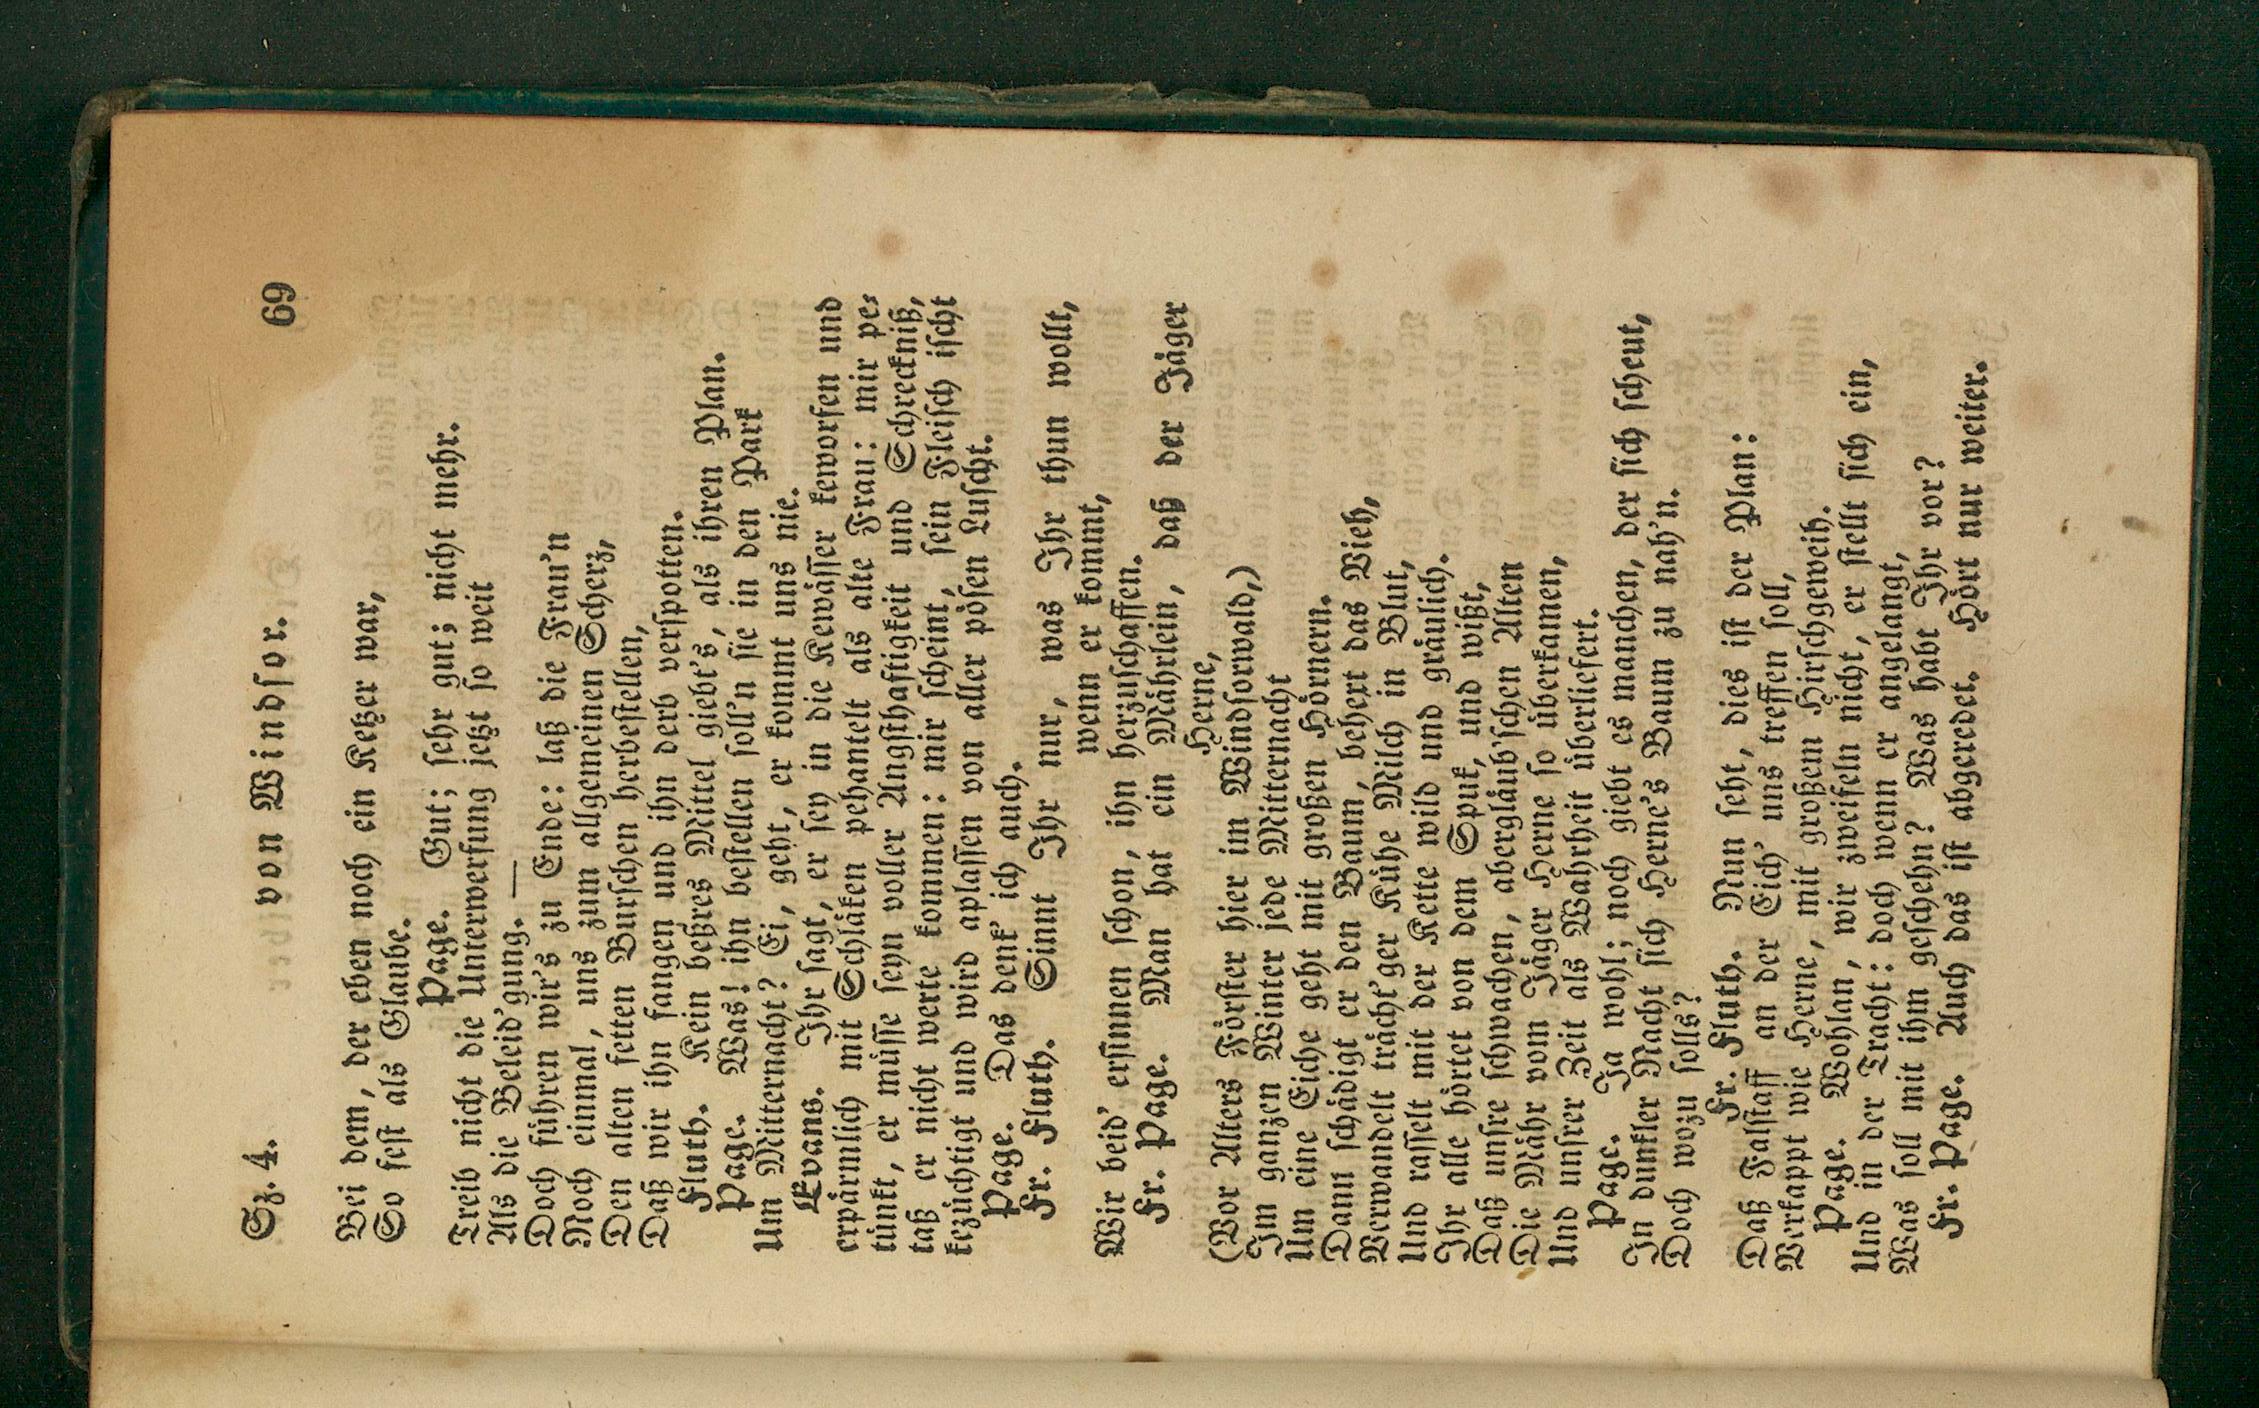 Sz. 4. von Windsor. 69
Bei dem, der eben noch ein Ketzer war,
So fest als Glaube.
Page. Gut; sehr gut; nicht mehr.
Treib nicht die Unterwerfung jetzt so weit
Als die Beleid'gung. —
Doch führen wir's zu Ende: laß die Frau'n
Noch einmal, uns zum allgemeinen Scherz,
Den alten fetten Burschen herbestellen,
Daß wir ihn fangen und ihn derb verspotten.
Fluth. Kein beßres Mittel giebt's, als ihren Plan.
Page. Was! ihn bestellen soll'n sie in den Park
Um Mitternacht? Ei, geht, er kommt uns nie.
Evans. Ihr sagt, er sey in die Kewässer keworfen und
erpärmlich mit Schläken pehantelt als alte Frau: mir pe-
tünkt, er müsse seyn voller Angsthaftigkeit und Schreckniß,
taß er nicht werte kommen: mir scheint, sein Fleisch ischt
kezüchtigt und wird aplassen von aller pösen Luscht.
Page. Das denk' ich auch.
Fr. Fluth. Sinnt Ihr nur, was Ihr thun wollt,
wenn er kommt,
Wir beid' ersinnen schon, ihn herzuschaffen.
Fr. Page. Man hat ein Mährlein, daß der Jäger
Herne,
(Vor Alters Förster hier im Windsorwald,)
Im ganzen Winter jede Mitternacht
Um eine Eiche geht mit großen Hörnern.
Dann schädigt er den Baum, behext das Vieh,
Verwandelt trächt'ger Kühe Milch in Blut,
Und rasselt mit der Kette wild und gräulich.
Ihr alle hörtet von dem Spuk, und wißt,
Daß unsre schwachen, abergläub'schen Alten
Die Mähr vom Jäger Herne so überkamen,
Und unsrer Zeit als Wahrheit überliefert.
Page. Ja wohl; noch giebt es manchen, der sich scheut,
In dunkler Nacht sich Herne's Baum zu nah'n.
Doch wozu solls?
Fr. Fluth. Nun seht, dies ist der Plan:
Daß Falstaff an der Eich' uns treffen soll,
Verkappt wie Herne, mit großem Hirschgeweih.
Page. Wohlan, wir zweifeln nicht, er stellt sich ein,
Und in der Tracht: doch wenn er angelangt,
Was soll mit ihm geschehn? Was habt Ihr vor?
Fr. Page. Auch das ist abgeredet. Hört nur weiter.